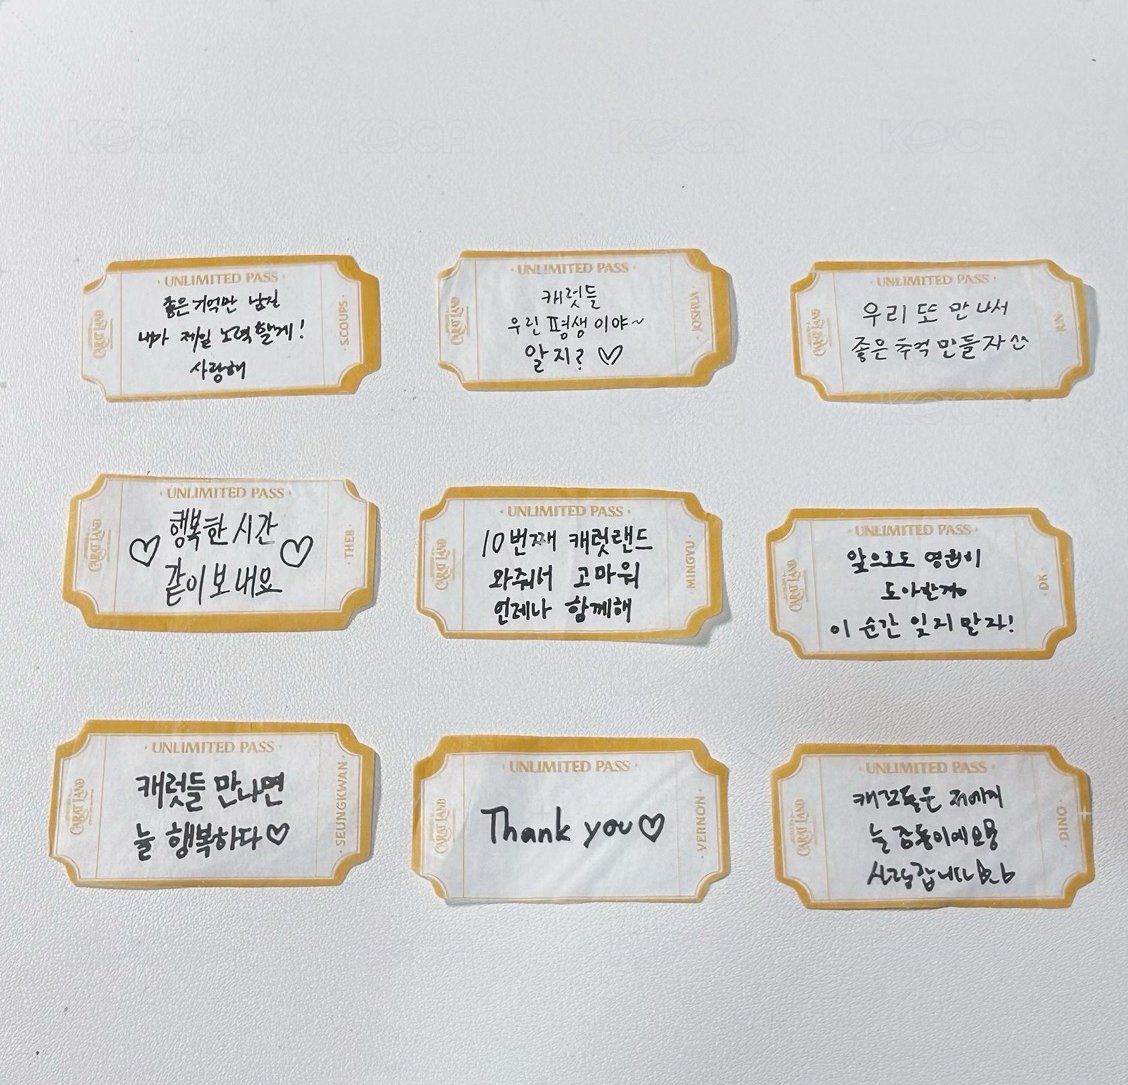 KOCA KOCA KOCA KOCA
UNLIMITED PASS
CARAT LAND
좋은 기억만 남길
내가 제일 노력할게!
사랑해
S.COUPS
UNLIMITED PASS
CARAT LAND
캐럿들
우린 평생이야~
알지? ♡
JOSHUA
UNLIMITED PASS
CARAT LAND
우리 또 만나서
좋은 추억 만들자 ^^
JUN
KOCA KOCA KOCA KOCA
UNLIMITED PASS
CARAT LAND
♡ 행복한 시간 ♡
같이 보내요
THE8
UNLIMITED PASS
CARAT LAND
10번째 캐럿랜드
와줘서 고마워
언제나 함께해
MINGYU
UNLIMITED PASS
CARAT LAND
앞으로도 영원히
이 순간 잊지 말자!
DK
UNLIMITED PASS
CARAT LAND
캐럿들 만나면
늘 행복하다♡
SEUNGKWAN
UNLIMITED PASS
CARAT LAND
Thank you♡
VERNON
UNLIMITED PASS
CARAT LAND
캐럿들은 저에게
늘 감동이에요
사랑합니다
DINO